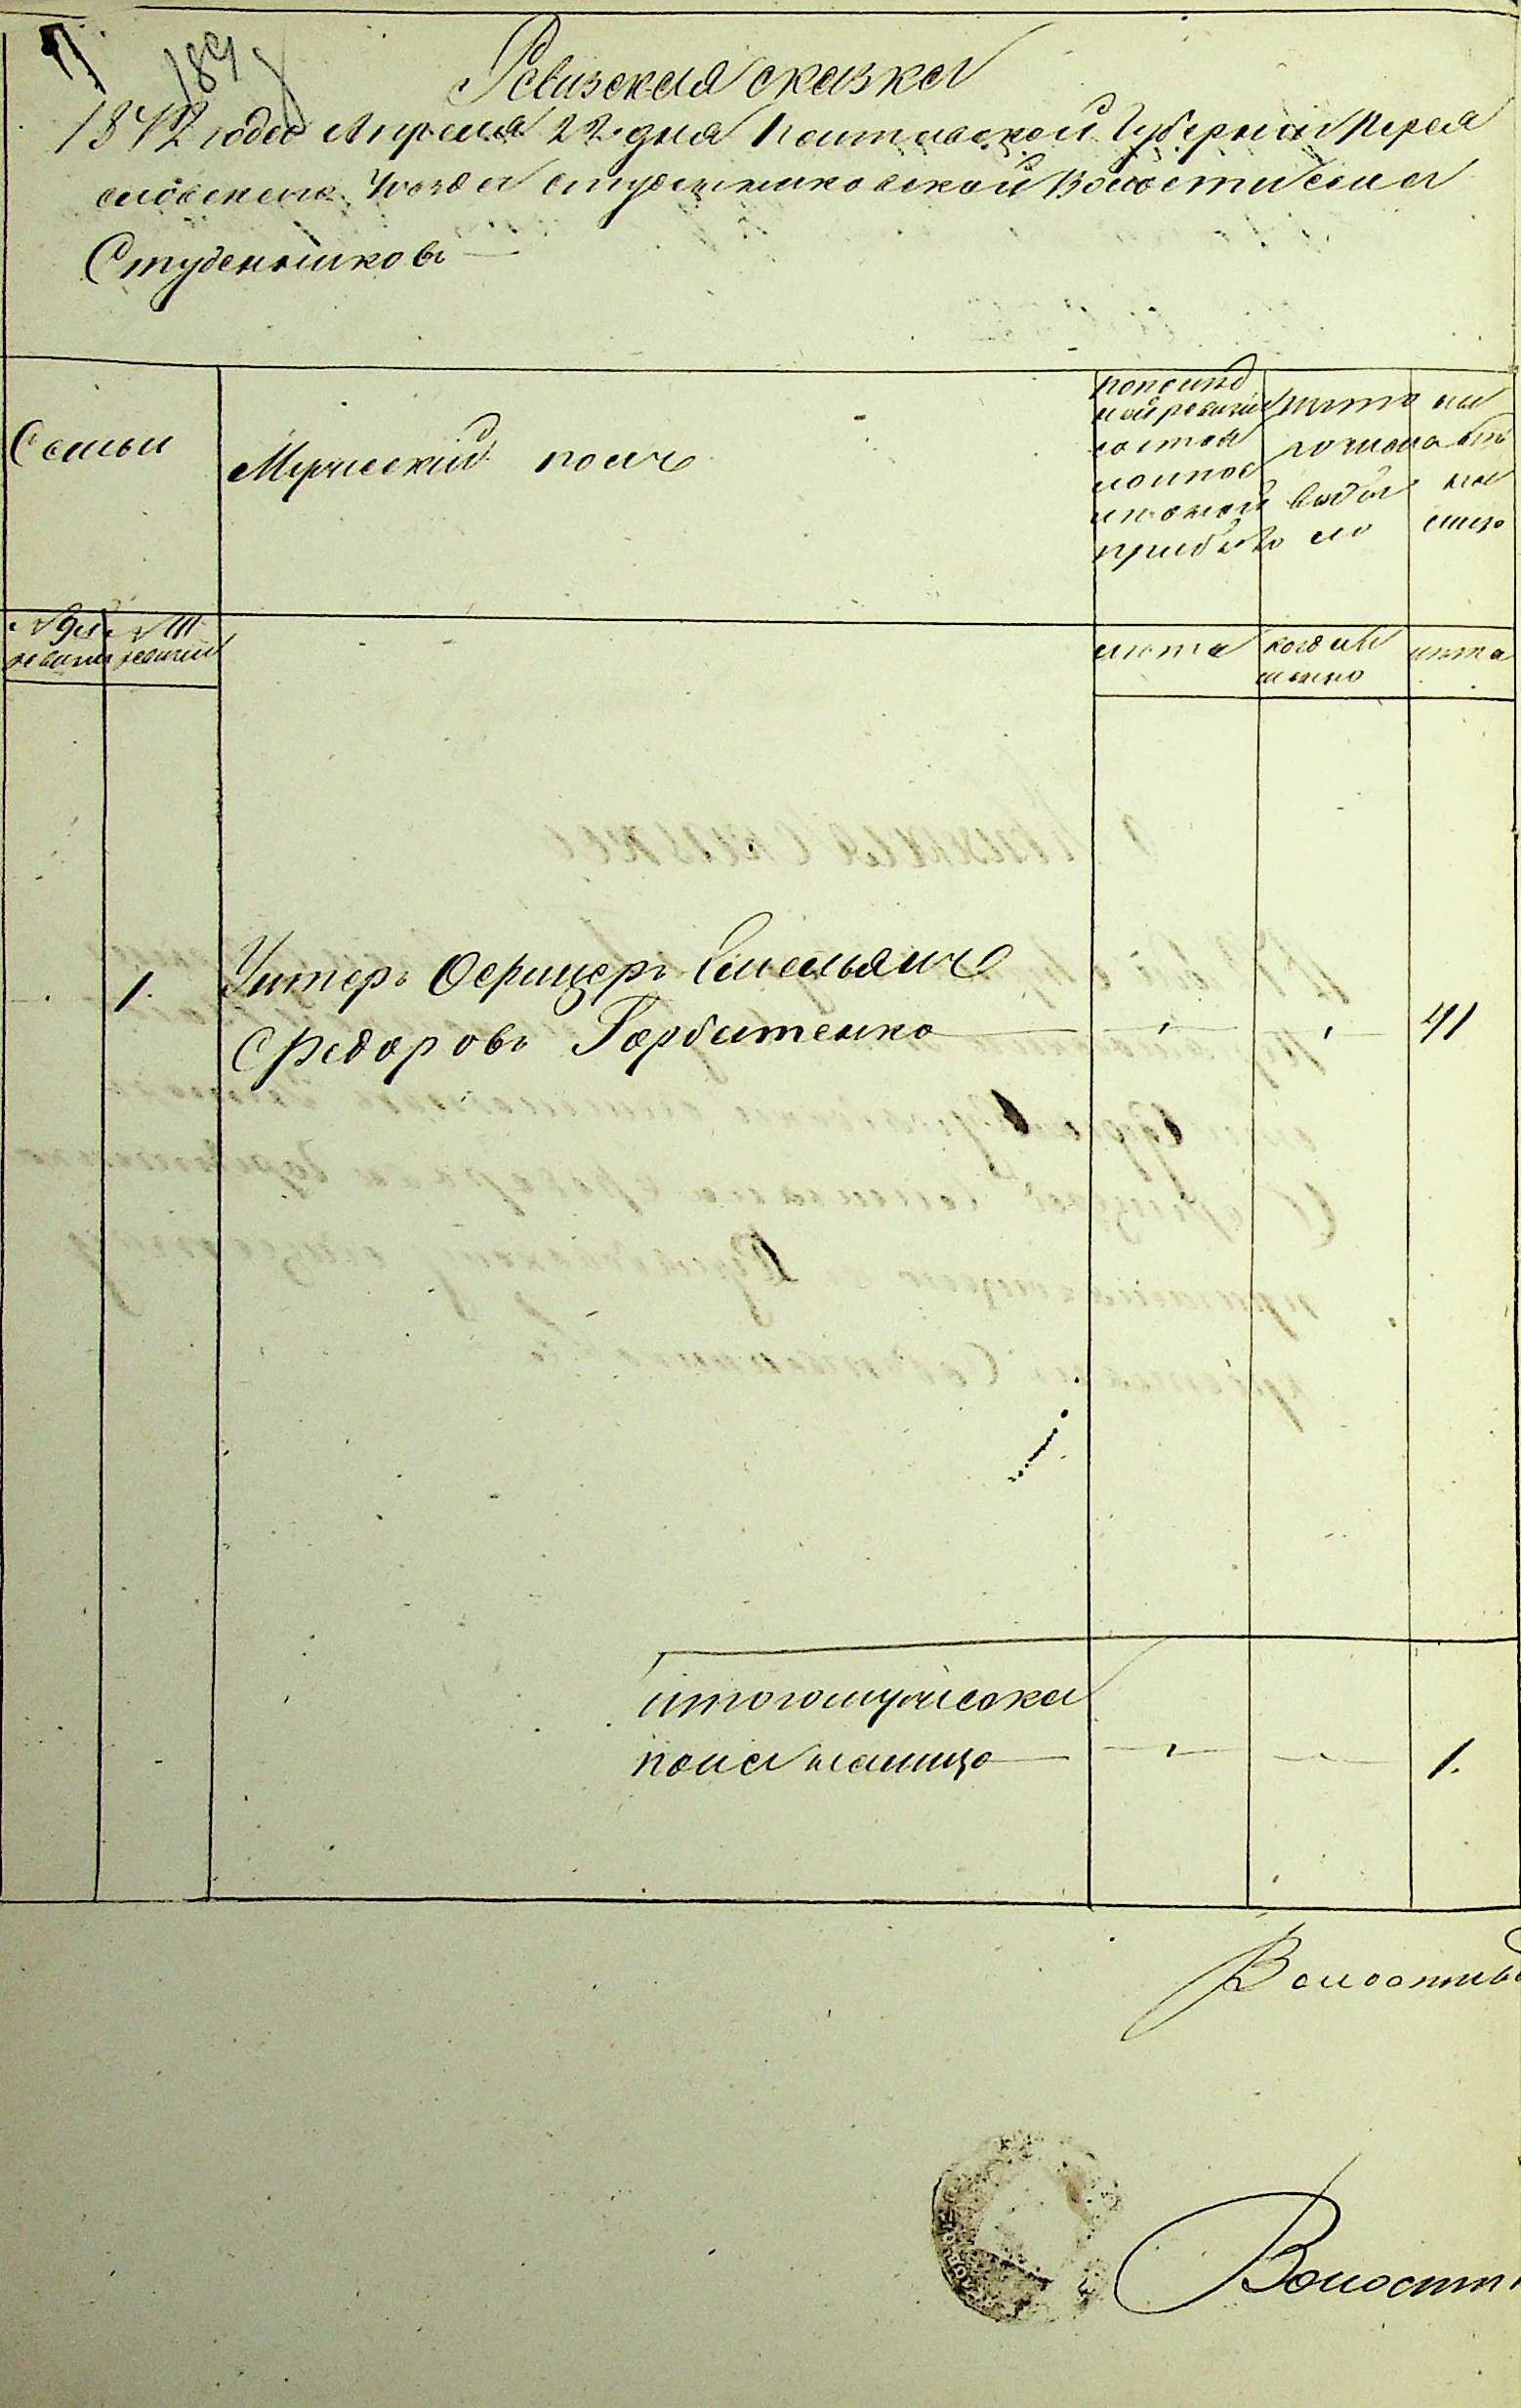 189
Ревизская сказка
1842 года Апреля 22 дня Полтавской Губернии Перея
славского Уезда Студенниковской Волости села
Студенниковъ
Семьи
Мужескій полъ
по послѣд
ней ревизіи
состоя
ло и по
оной
прибыло
изъ того
числа
выбы
ло
ны
нѣ
на
лицо
№
ревизіи
№
ревизіи
лѣта
когда и
менно
лѣта
1.
Унтеръ Офицеръ Емельянъ
Федоровъ Горбатенко
41
итого мужеска
пола налицо
1.
Волостны
Волостн